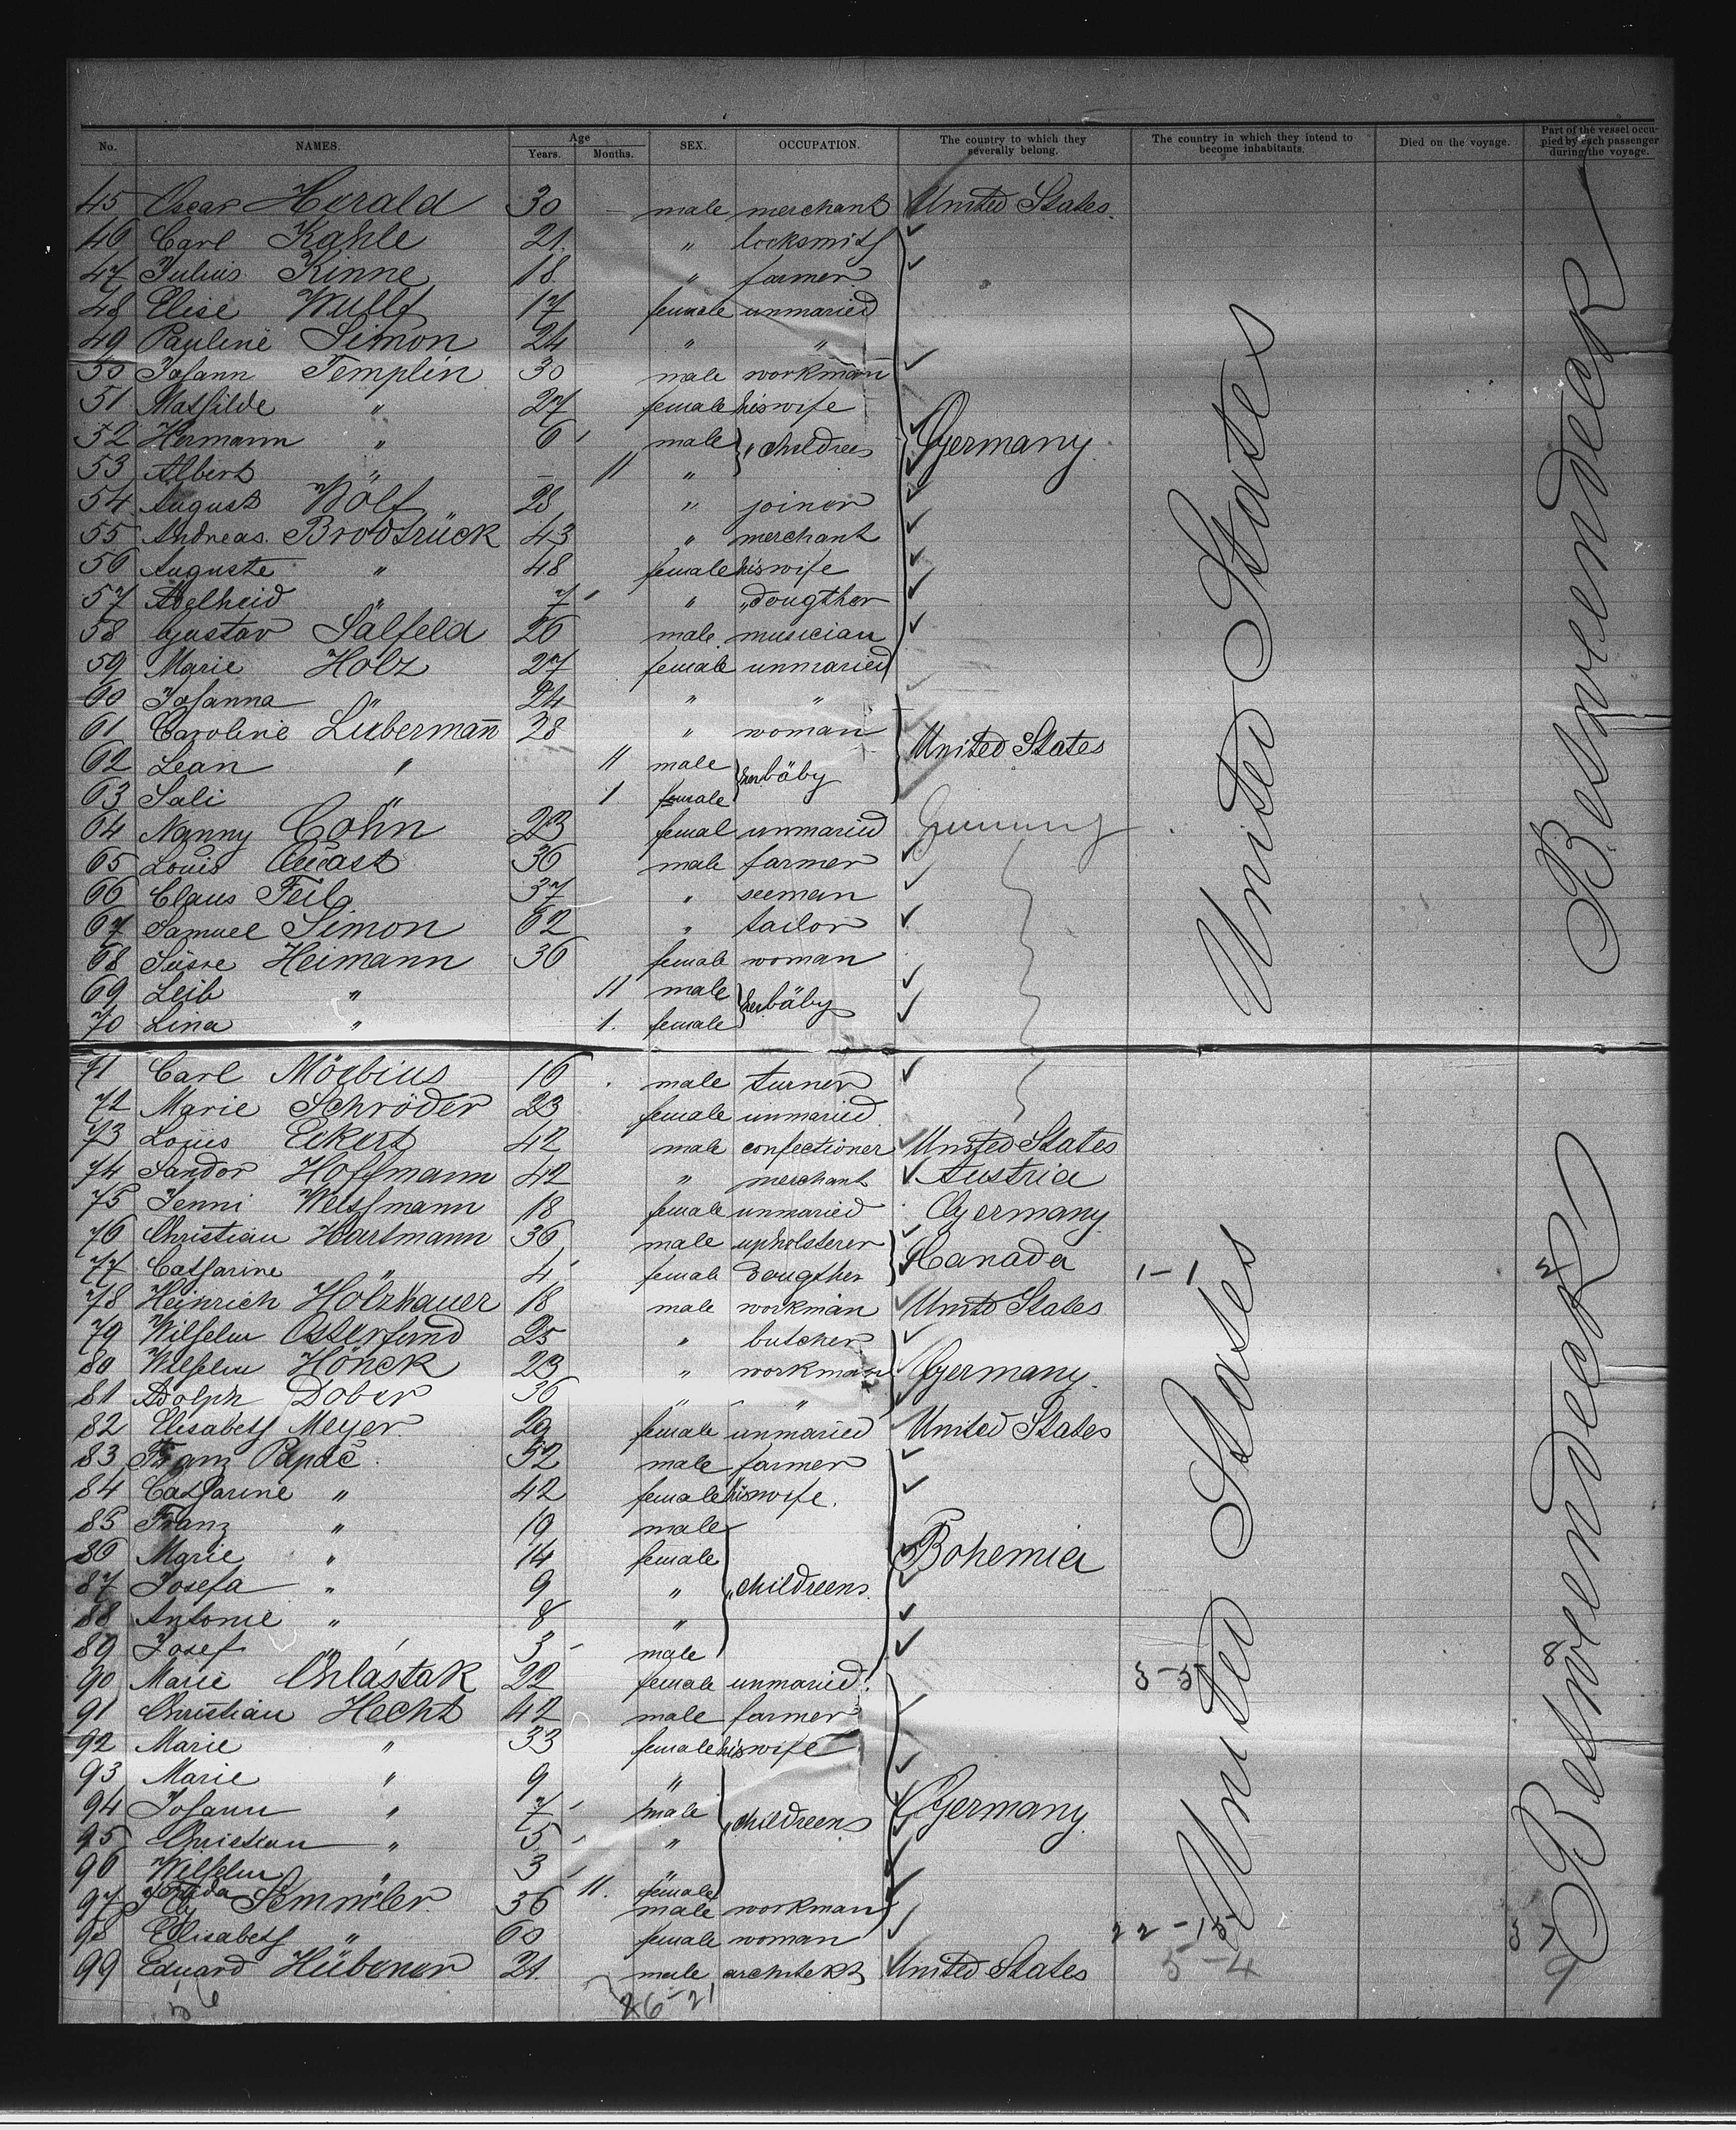 No. NAMES. Age Years. Months. SEX. OCCUPATION. The country to which they severally belong. The country in which they intend to become inhabitants. Died on the voyage. Part of the vessel occupied by each passenger during the voyage.
45 Oscar Herald 30 – male merchant United States.
46 Carl Kahle 21. " locksmith
47 Julius Kinne 18. " farmer
48 Elise Wulff 17 female unmaried
49 Pauline Simon 24 " "
50 Johann Templin 30 male workman
51 Mathilde " 27 female his wife
52 Hermann " 6 male " childrees Germany.
53 Albert " – 11 "
54 August Wolf 28 " joiner
55 Andreas Brodtrück 43 " merchant
56 Auguste " 48 female his wife
57 Adelheid " 7 " " dougther
58 Gustav Salfeld 26 male musician
59 Marie Holz 27 female unmaried
60 Johanna " 24 " "
61 Caroline Lubermann̄ 38 " woman United States
62 Lean " 11 male her bäby
63 Sali " 1 female
64 Nanny Cohn 23 femal unmaried Germany
65 Louis Quast 36 male farmer
66 Claus Feil 37 " seeman
67 Samuel Simon 62 " tailor
68 Süsse Heimann 36 female woman
69 Leib " 11 male her bäby
70 Lina " 1. female
United States
Betweendeck
71 Carl Möebius 16 male turner
72 Marie Schröder 23 female unmaried
73 Louis Eckert 42 male confectioner United States
74 Sandor Hoffmann 42 " merchant Austria
75 Jenni Weissmann 18 female unmaried Germany
76 Christian Hartmann 36 male upholsterer Canada
77 Catharine " 4 female dougther 1–1
78 Heinrich Holzhauer 18 male workman Unitd States
79 Wilhelm Osterfund 25 " butcher
80 Wilhelm Hönck 23 " workman Germany.
81 Adolph Dober 36 " "
82 Elisabeth Meyer. 29 female unmaried United States
83 Franz Papac 52 male farmer
84 Catharine " 42 female his wife.
85 Franz " 19 male
86 Marie " 14 female Bohemia
87 Josefa " 9 " " childreens.
88 Antonie " 8 "
89 Josef " 3 male
90 Marie Chlastak 22 female unmaried. 5–5
91 Christian Hecht 42 male farmer
92 Marie " 33 female his wife
93 Marie " 9 "
94 Johann " 7 male " childreens Germany.
95 Christian " 5 "
96 Wilhelm " 3 "
Frida 11. female
97 Semmler. 36 male workman
98 Elisabeth " 60 female woman 22–15
99 Eduard Hübener 21. male architekt United States 5–4
26–21
United States
Betweendeck